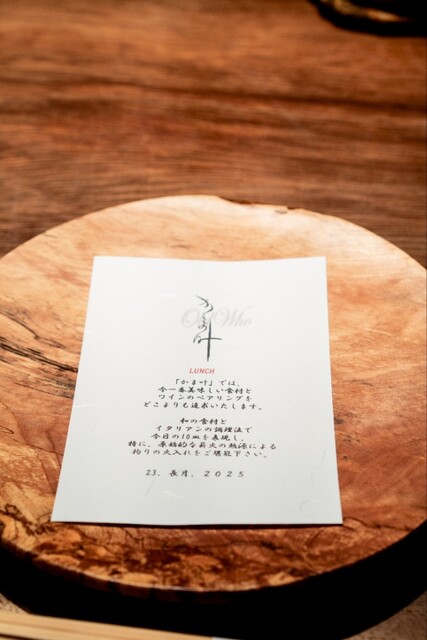 かまの叶
LUNCH
「かま叶」では、
今一番美味しい食材と
ワインのペアリングを
どこよりも追求いたします。
和の食材と
イタリアンの調理法で
今日の10皿を表現し、
特に、原始的な薪火の熱源による
拘りの火入れをご堪能下さい。
23. 長月. 2025